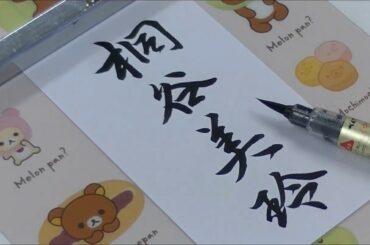 桐谷美玲
Melon pan?
Melon pan?
Mochimo